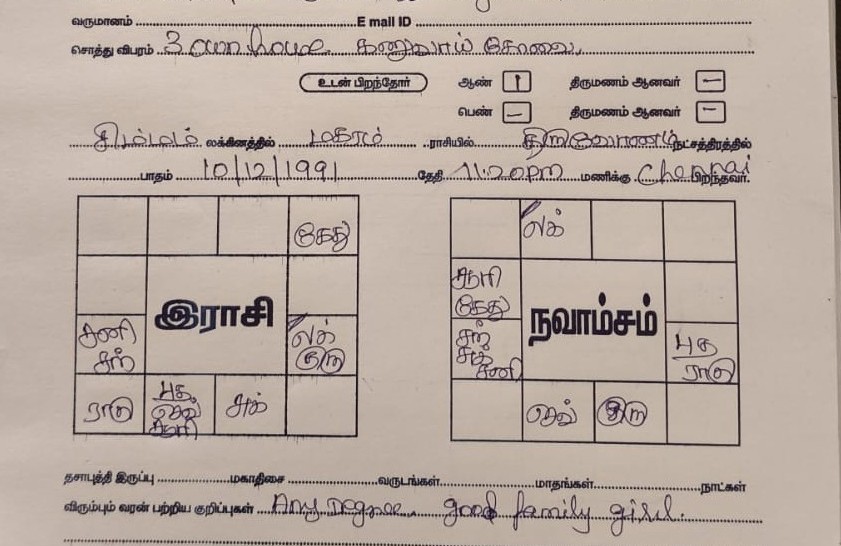 வருமானம் E mail ID
சொத்து விபரம் 3 own house. கணுவாய் கோவை,
உடன் பிறந்தோர் ஆண் 1 திருமணம் ஆனவர் —
பெண் — திருமணம் ஆனவர் —
சிம்மம் லக்கினத்தில் மகரம் ராசியில் திருவோணம் நட்சத்திரத்தில்
பாதம் 10/12/1991 தேதி 11.20pm மணிக்கு Chennai பிறந்தவர்.
கேது
சனி
சந்
இராசி
லக்
குரு
ராகு
புத
செவ்
சூரி
சுக்
லக்
சூரி
கேது
சந்
சுக்
சனி
நவாம்சம்
புத
ராகு
செவ்
குரு
தசாபுத்தி இருப்பு மகாதிசை வருடங்கள் மாதங்கள் நாட்கள்
விரும்பும் வரன் பற்றிய குறிப்புகள் Any Degree. good family girl.